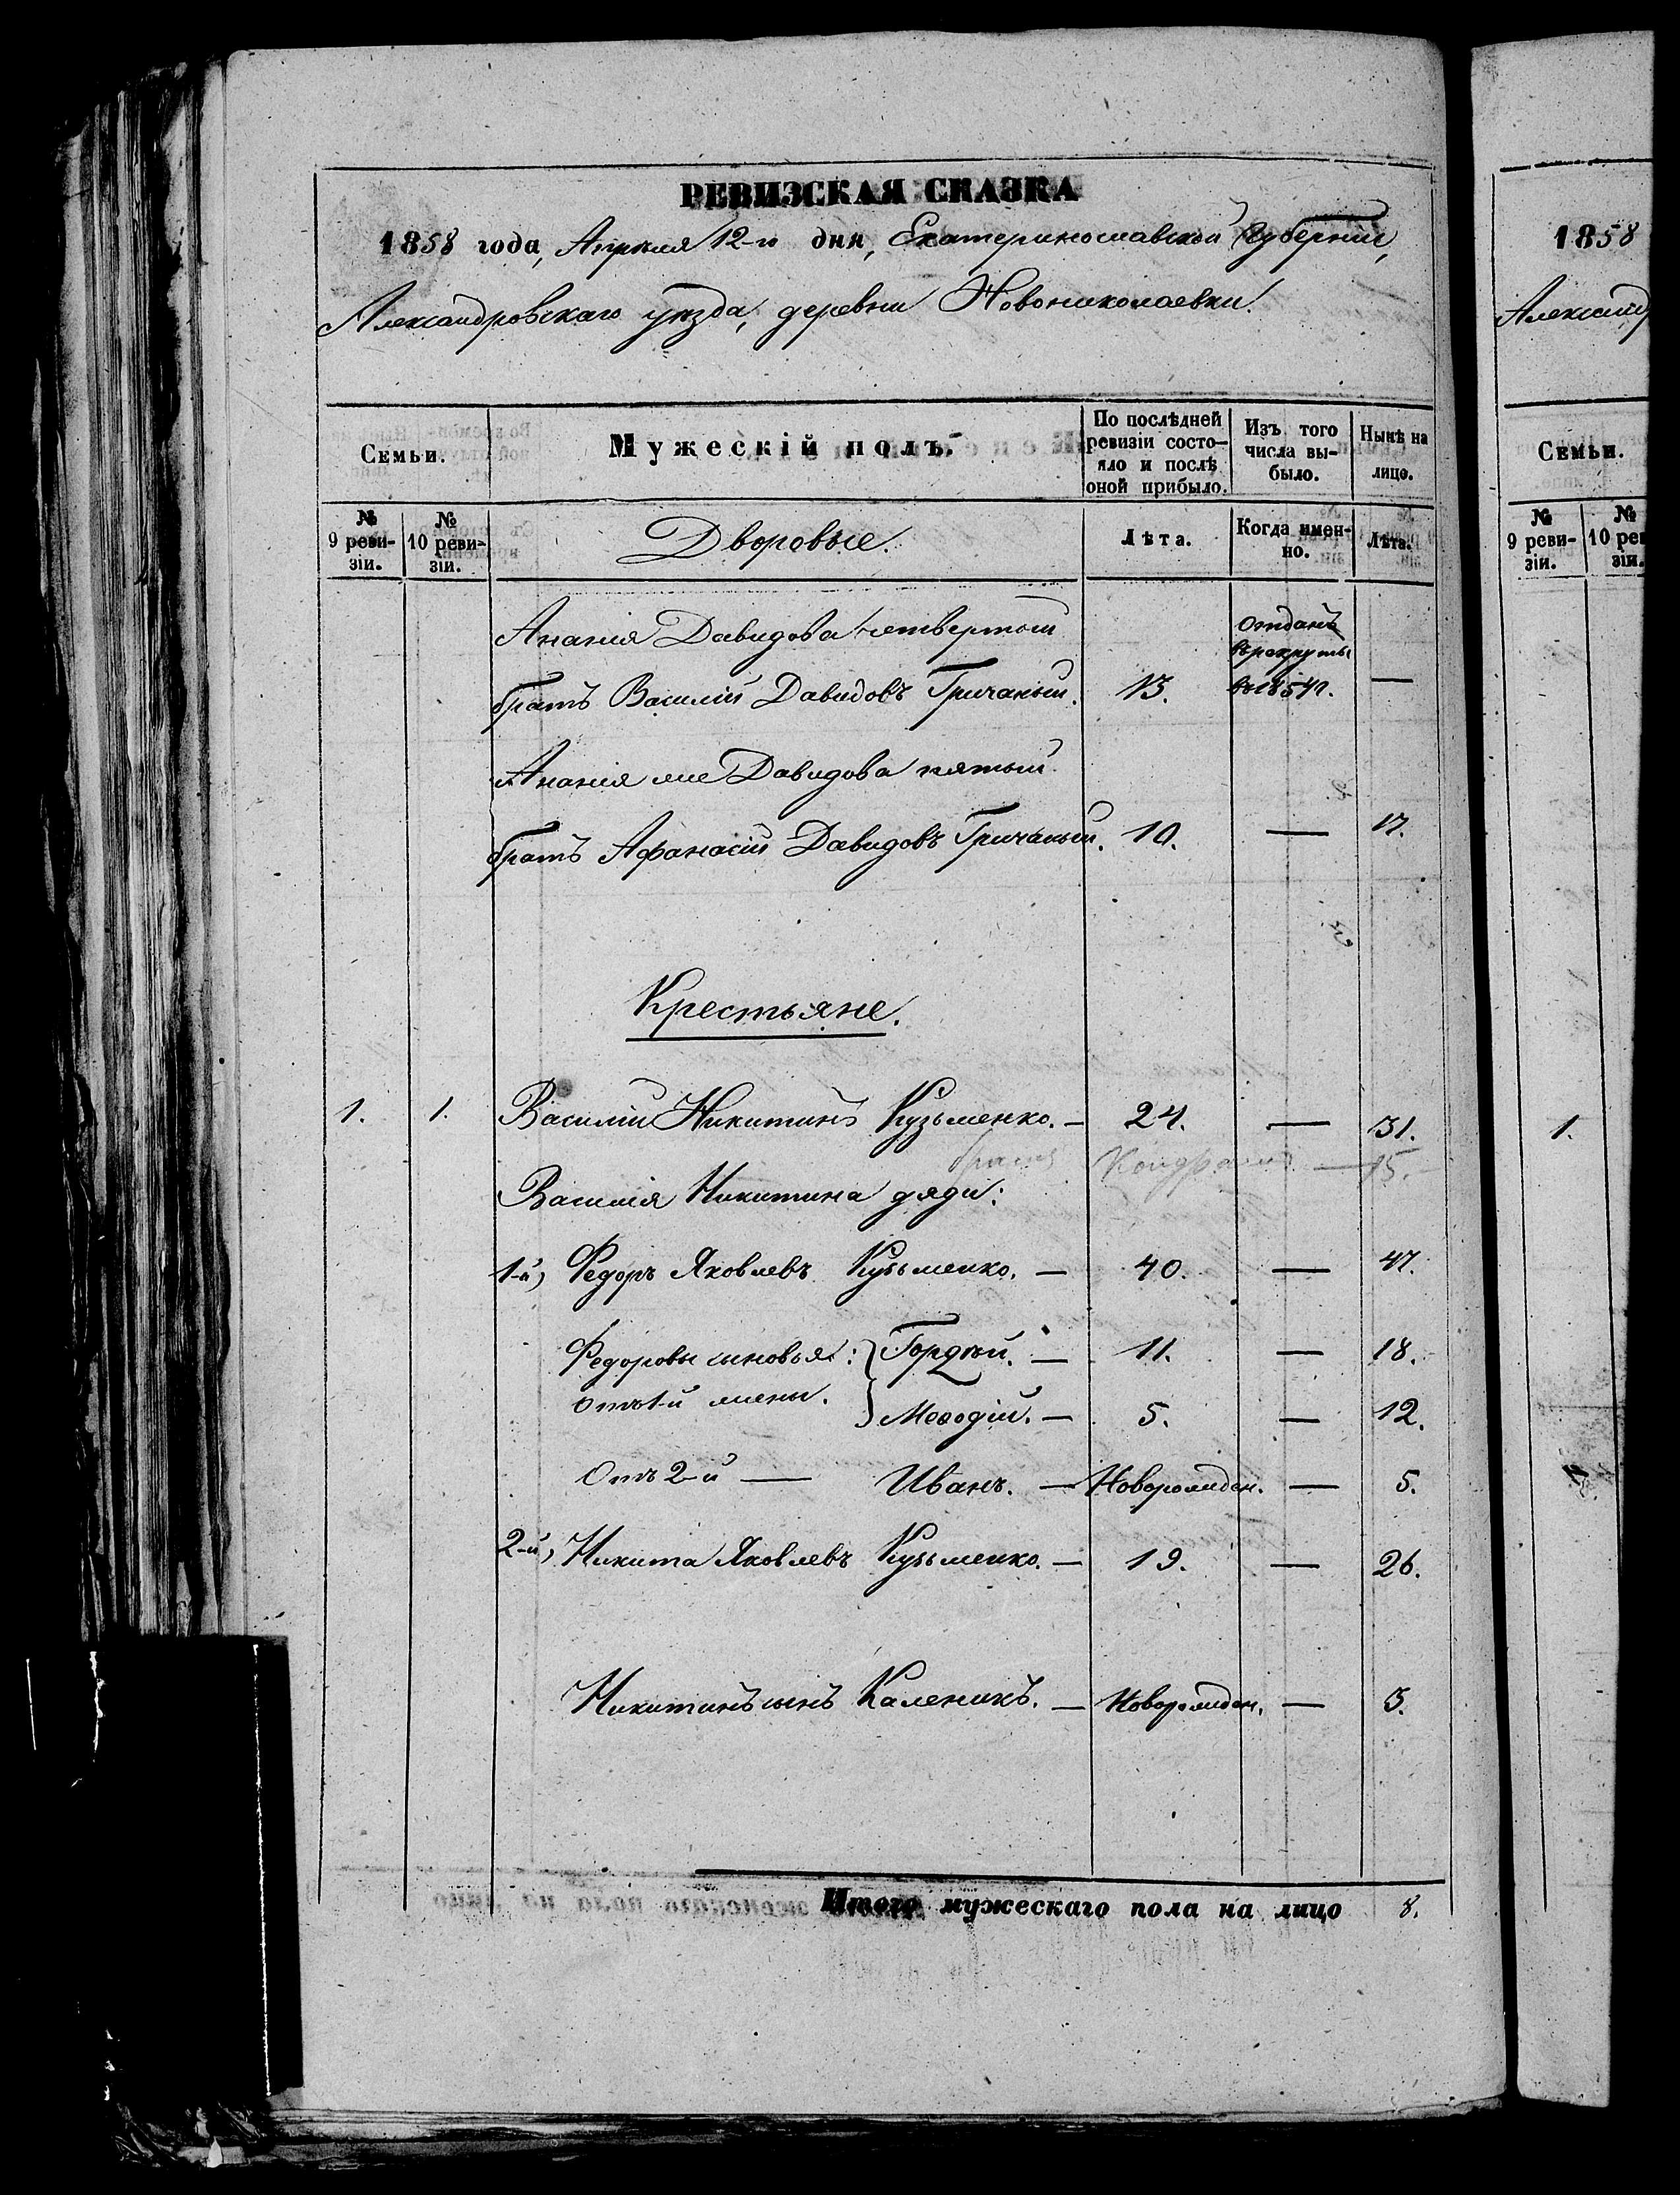 РЕВИЗСКАЯ СКАЗКА
1858 года, Апреля 12-го дня, Екатеринославской Губерніи,
Александровскаго уѣзда, деревни Новониколаевки.
Семьи.
Мужескій полъ.
По послѣдней
ревизіи состо-
яло и послѣ
оной прибыло.
Изъ того
числа вы-
было.
Нынѣ на
лице.
№
9 реви-
зіи.
№
10 реви-
зіи.
Дворовые.
Лѣта.
Когда имен-
но.
Лѣта.
Ананія Давидова четвертый
братъ Василій Давидовъ Гричаный. 13. отданъ в рекруты в 1854 г. —
Ананія же Давидова пятый
братъ Афанасій Давидовъ Гричаный. 10. — 17.
Крестьяне.
1. 1. Василій Никитинъ Кузьменко. — 24. — 31.
братъ Кондратъ — 15.
Василія Никитина дяди:
1-й, Федоръ Яковлевъ Кузьменко. — 40. — 47.
Федоровы сыновья: Гордѣй. — 11. — 18.
отъ 1-й жены. Мефодій. — 5. — 12.
Отъ 2-й — Иванъ. — Новорожден. — 5.
2-й, Никита Яковлевъ Кузьменко. — 19. — 26.
Никитинъ сынъ Каленикъ. — Новорожден. — 3.
Итого мужескаго пола на лицо 8.
1858
Александ
Семьи.
№
9 реви-
зіи.
№
10 рев
зіи.
1.